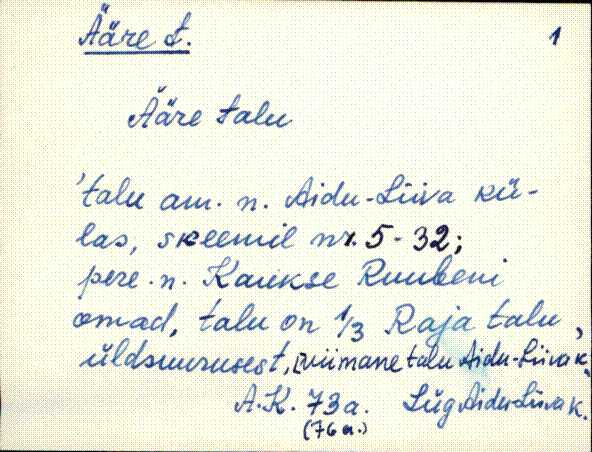 Ääre t. 1
Ääre talu
'talu am. n. Aidu-Liiva kü-
las, skeemil nr. 5-32;
pere. n. Kaukse Ruubeni
omad, talu on 1/3 Raja talu,
üldsuurusest, [viimane talu Aidu-Liiva k.
A.K. 73a. Lüg Aidu-Liiva k.
(76 a.)